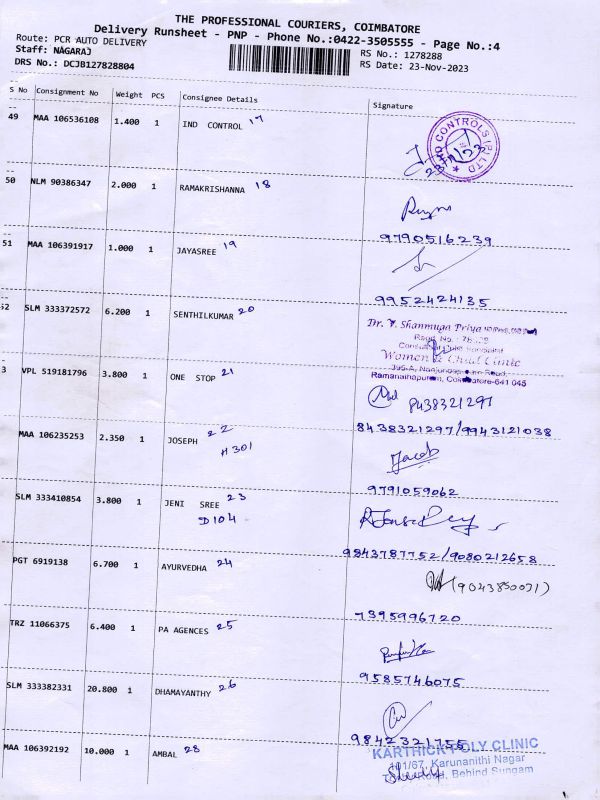 THE PROFESSIONAL COURIERS, COIMBATORE
Delivery Runsheet - PNP - Phone No.:0422-3505555 - Page No.:4
Route: PCR AUTO DELIVERY
RS No.: 1278288
Staff: NAGARAJ
RS Date: 23-Nov-2023
DRS No.: DCJB127828804
S No Consignment No Weight PCS Consignee Details Signature
49 MAA 106536108 1.400 1 IND CONTROL 17
50 NLM 90386347 2.000 1 RAMAKRISHANNA 18
9790516239
51 MAA 106391917 1.000 1 JAYASREE 19
9952424135
52 SLM 333372572 6.200 1 SENTHILKUMAR 20
Dr. V. Shanmuga Priya
Women & Child Clinic
Ramanathapuram, Coimbatore-641 045
3 VPL 519181796 3.800 1 ONE STOP 21
8438321297
8438321297/9943121038
MAA 106235253 2.350 1 JOSEPH 22
H301
Jacob
9791059062
SLM 333410854 3.800 1 JENI SREE 23
D104
9843787752/9080212658
PGT 6919138 6.700 1 AYURVEDHA 24
(9043850071)
7395996720
TRZ 11066375 6.400 1 PA AGENCES 25
9585746075
SLM 333382331 20.800 1 DHAMAYANTHY 26
9842321755
MAA 106392192 10.000 1 AMBAL 28
KARTHICK POLY CLINIC
101/67, Karunanithi Nagar
Road, Behind Sungam